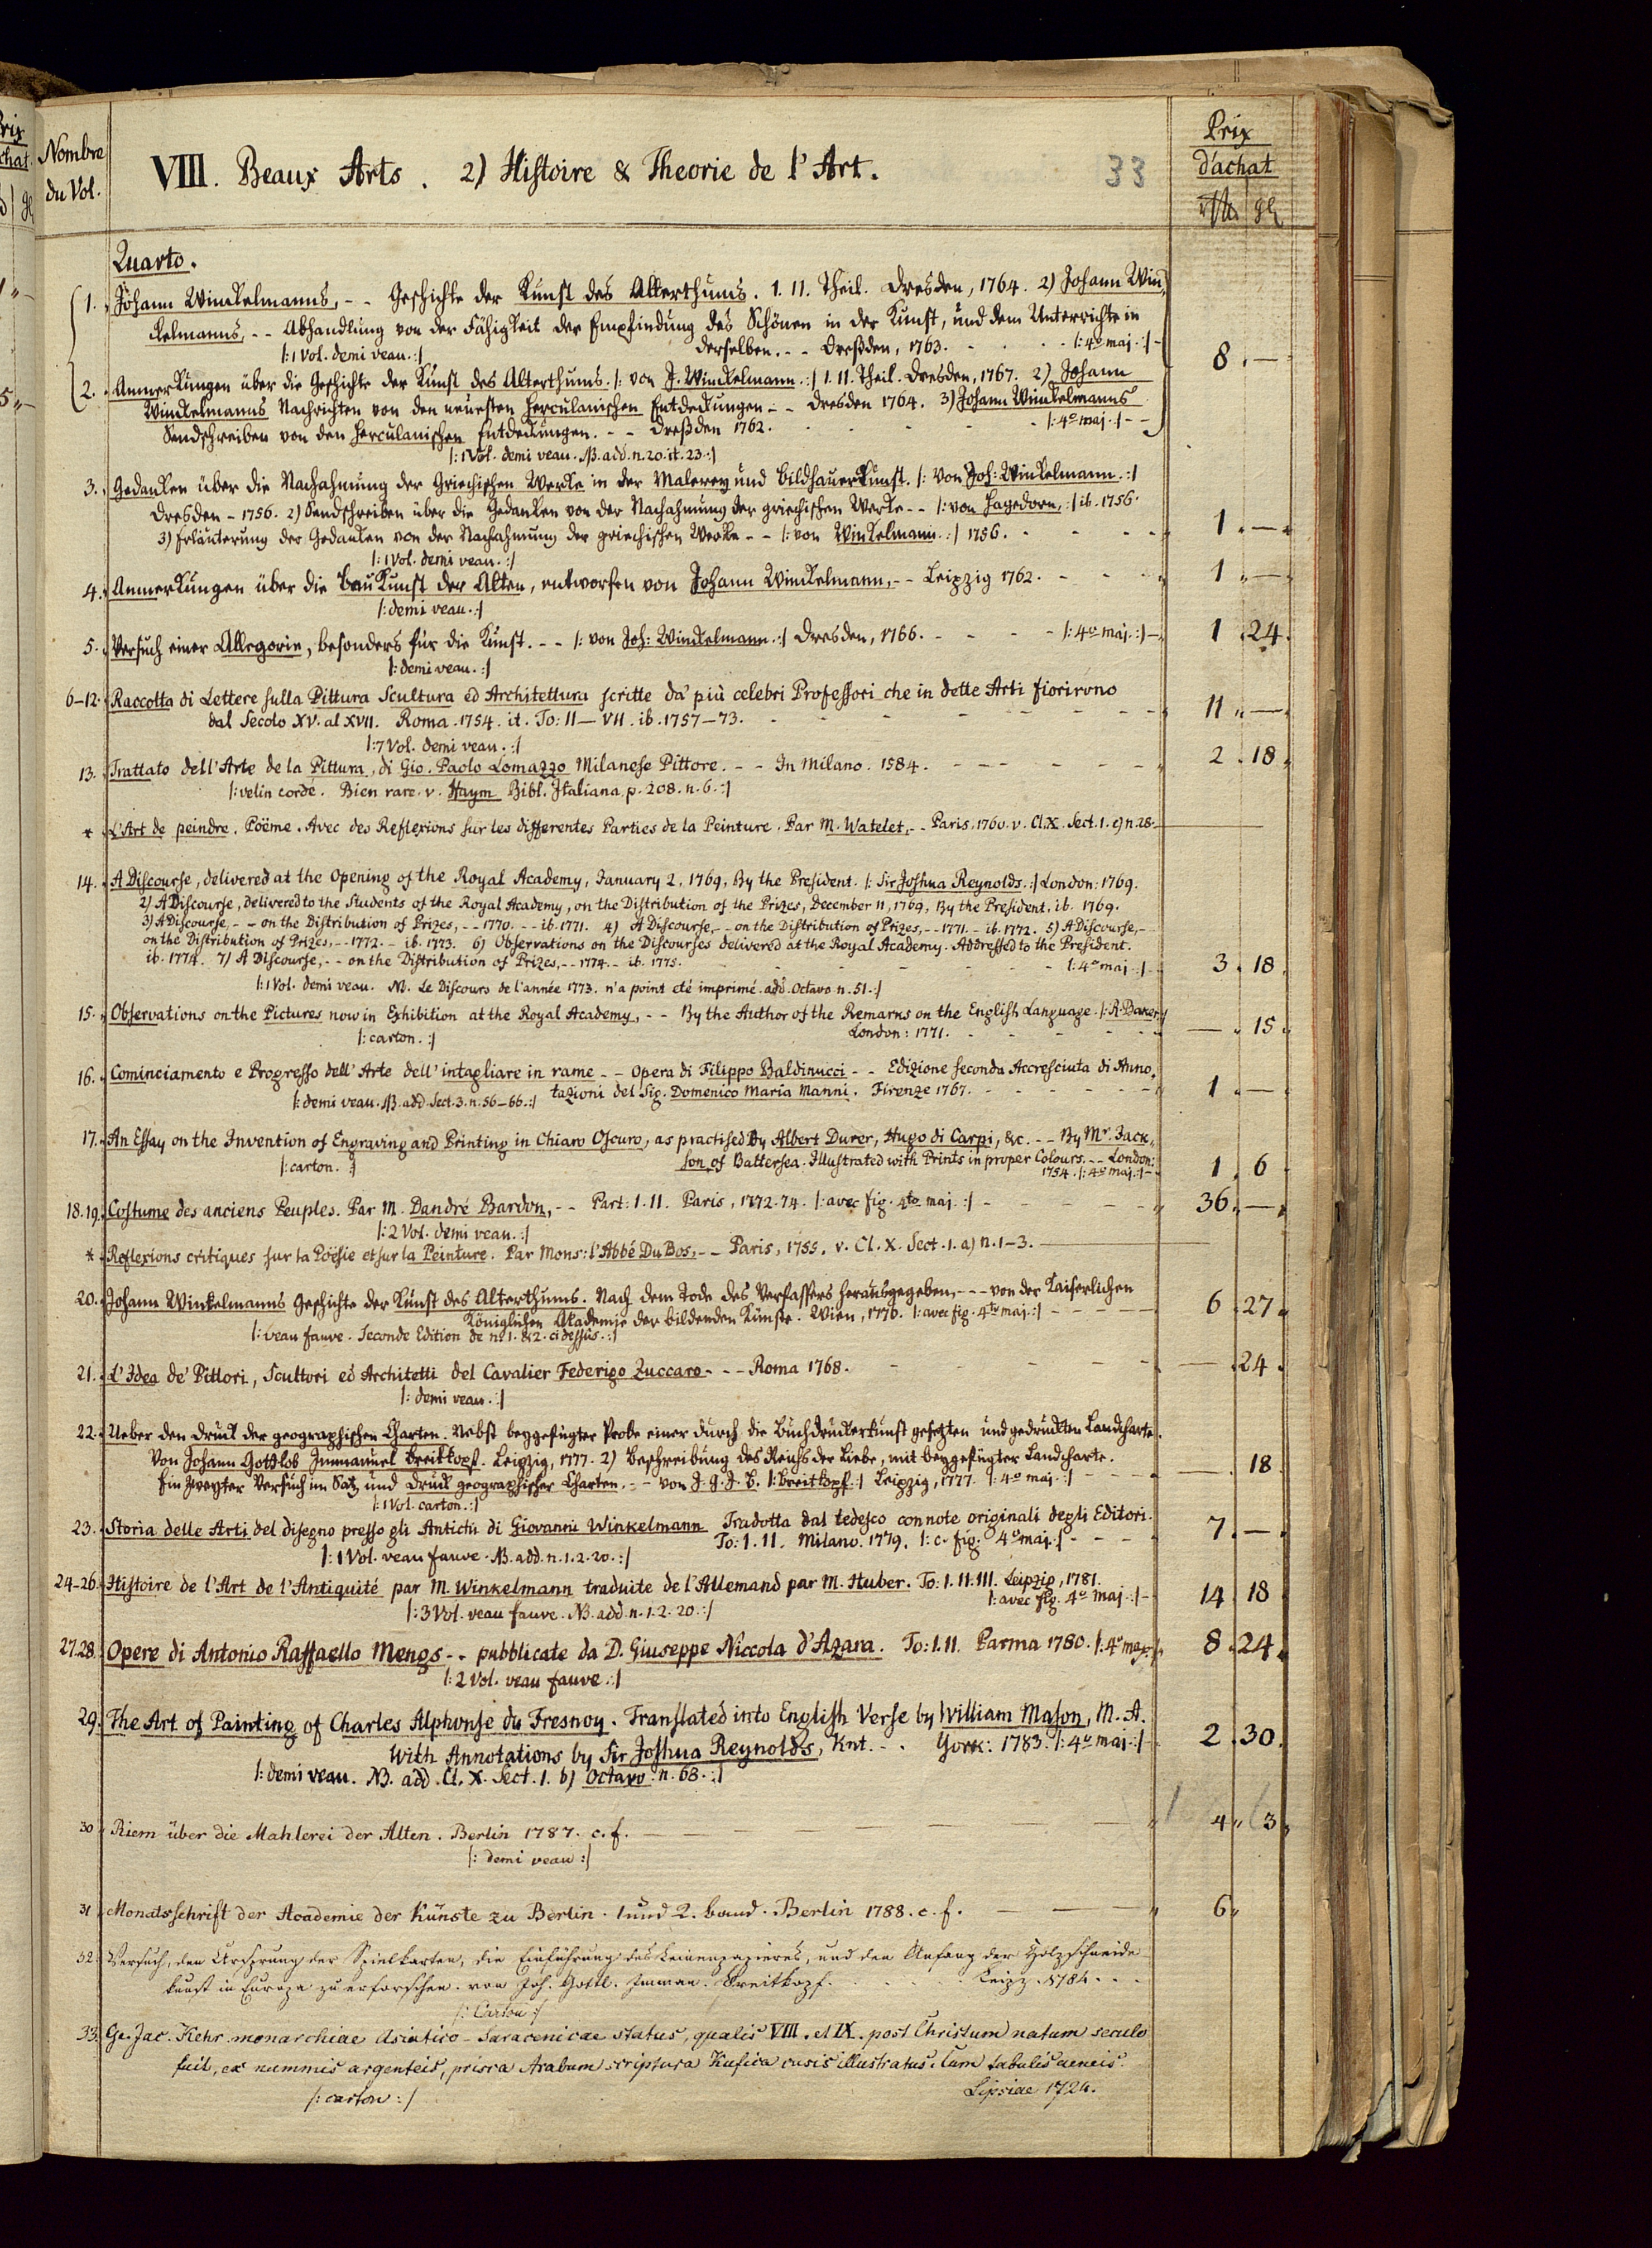 Nombre
du Vol.
VIII. Beaux Arts. 2) Histoire & Theorie de l'Art.
33
Prix
d'achat
Quarto.
1. Johann Winckelmanns, -- Geschichte der Kunst des Alterthums. I. II. Theil. Dresden, 1764. 2) Johann Win,
ckelmanns, -- Abhandlung von der Fähigkeit der Empfindung des Schönen in der Kunst, und dem Unterrichte in
derselben. -- Dreßden, 1763. |: 4o maj. :| 8. —
|: 1 Vol. demi veau. :|
2. Anmerkungen über die Geschichte der Kunst des Alterthums. |: von J. Winckelmann. :| I. II. Theil. Dresden, 1767. 2) Johann
Winckelmanns Nachrichten von den neuesten Herculanischen Entdeckungen -- Dresden 1764. 3) Johann Winckelmanns
Sendschreiben von den Herculanischen Entdeckungen. -- Dreßden 1762. |: 4o maj. :|
|: 1 Vol. demi veau. NB. add. n. 20. it. 23. :|
3. Gedanken über die Nachahmung der Griechischen Werke in der Malerey und Bildhauerkunst. |: von Joh: Winckelmann. :|
Dresden - 1756. 2) Sendschreiben über die Gedanken von der Nachahmung der griechischen Werke -- |: von Hagedorn, :| ib. 1756.
3) Erläuterung der Gedanken von der Nachahmung der griechischen Werke -- |: von Winkelmann. :| 1756. 1. —
|: 1 Vol. demi veau. :|
4. Anmerkungen über die Baukunst der Alten, entworfen von Johann Winckelmann, -- Leipzig 1762. 1. —
|: demi veau. :|
5. Versuch einer Allegorie, besonders für die Kunst. -- |: von Joh: Winckelmann. :| Dresden, 1766. |: 4o maj. :| 1. 24.
|: demi veau. :|
6-12. Raccolta di Lettere sulla Pittura Scultura ed Architettura scritte da' più celebri Professori che in dette Arti fiorirono
dal Secolo XV. al XVII. Roma. 1754. it. To: II — VII. ib. 1757-73. 11. —
|: 7 Vol. demi veau. :|
13. Trattato dell'Arte de la Pittura, di Gio. Paolo Lomazzo Milanese Pittore. -- In Milano. 1584. 2. 18.
|: velin cordé. Bien rare. v. Haym Bibl. Italiana p. 208. n. 6. :|
* L'Art de peindre. Poëme. Avec des Reflexions sur les differentes Parties de la Peinture. Par M. Watelet, -- Paris, 1760. v. Cl. X. Sect. 1. c) n. 28.
14. A Discourse, delivered at the Opening of the Royal Academy, January 2, 1769, By the President. |: Sir Joshua Reynolds. :| London: 1769.
2) A Discourse, Delivered to the Students of the Royal Academy, on the Distribution of the Prizes, December 11, 1769, By the President, ib. 1769.
3) A Discourse, -- on the Distribution of Prizes, -- 1770. -- ib. 1771. 4) A Discourse, -- on the Distribution of Prizes, -- 1771. - ib. 1772. 5) A Discourse, --
on the Distribution of Prizes, -- 1772. - ib. 1773. 6) Observations on the Discourses delivered at the Royal Academy. Addressed to the President.
ib. 1774. 7) A Discourse, -- on the Distribution of Prizes, -- 1774. - ib. 1775. |: 4o maj. :| 3. 18.
|: 1 Vol. demi veau. NB. Le Discours de l'année 1773. n'a point eté imprimé. add. Octavo n. 51. :|
15. Observations on the Pictures now in Exhibition at the Royal Academy, -- By the Author of the Remarks on the English Language. |: R. Baker. :|
London: 1771. — 15.
|: carton. :|
16. Cominciamento e Progresso dell'Arte dell'intagliare in rame -- Opera di Filippo Baldinucci -- Edizione seconda Accresciuta di Anno,
tazioni del Sig. Domenico Maria Manni. Firenze 1767. 1. —
|: demi veau. NB. add. Sect. 3. n. 56-66. :|
17. An Essay on the Invention of Engraving and Printing in Chiaro Oscuro, as practised by Albert Durer, Hugo di Carpi, &c. -- By Mr. Jack,
son of Battersea. Illustrated with Prints in proper Colours. -- London:
1754. |: 4o maj. :| 1. 6.
|: carton. :|
18. 19. Costume des anciens Peuples. Par M. Dandré Bardon, -- Part: I. II. Paris, 1772. 74. |: avec fig. 4to maj. :| 36. —
|: 2 Vol. demi veau. :|
* Reflexions critiques sur la Poësie et sur la Peinture. Par Mons: l'Abbé Du Bos, -- Paris, 1755. v. Cl. X. Sect. 1. a) n. 1-3.
20. Johann Winkelmanns Geschichte der Kunst des Alterthums. Nach dem Tode des Verfassers herausgegeben, --- von der Kaiserlichen
Königlichen Akademie der bildenden Künste. Wien, 1776. |: avec fig. 4to maj. :| 6. 27.
|: veau fauve. Seconde Edition de no. 1. & 2. ci dessus. :|
21. L'Idea de' Pittori, Scultori ed Architetti del Cavalier Federigo Zuccaro --- Roma 1768. — 24.
|: demi veau. :|
22. Ueber den Druck der geographischen Charten. Nebst beygefügter Probe einer durch die Buchdruckerkunst gesetzten und gedruckten Landcharte.
Von Johann Gottlob Immanuel Breitkopf. Leipzig, 1777. 2) Beschreibung des Reichs der Liebe, mit beygefügter Landcharte.
Ein zweyter Versuch im Satz und Druck geographischer Charten. -- von J. G. J. B. |: Breitkopf. :| Leipzig, 1777. |: 4o maj. :| — 18
|: 1 Vol. carton. :|
23. Storia delle Arti del disegno presso gli Antichi di Giovanni Winkelmann Tradotta dal tedesco con note originali degli Editori.
To: I. II. Milano. 1779. |: c. fig. 4o maj. :| 7. —
|: 1 Vol. veau fauve. NB. add. n. 1. 2. 20. :|
24-26. Histoire de l'Art de l'Antiquité par M. Winkelmann traduite de l'Allemand par M. Huber. To: I. II. III. Leipzig, 1781.
|: avec fig. 4o maj. :| 14 18
|: 3 Vol. veau fauve. NB. add. n. 1. 2. 20. :|
27. 28. Opere di Antonio Raffaello Mengs -- pubblicate da D. Giuseppe Niccola d'Azara. To: I. II. Parma 1780. |: 4o maj. :| 8. 24.
|: 2 Vol. veau fauve. :|
29. The Art of Painting of Charles Alphonse du Fresnoy. Translated into English Verse by William Mason, M. A.
With Annotations by Sir Joshua Reynolds, Knt. -. York: 1783. |: 4o maj. :| 2. 30.
|: demi veau. NB. add. Cl. X. Sect. 1. b) Octavo: n. 68. :|
30 Riem über die Mahlerei der Alten. Berlin 1787. c. f. 4 „ 3 „
|: demi veau :|
31 Monatsschrift der Academie der Künste zu Berlin. 1 und 2. Band. Berlin 1788. c. f. 6 „
32. Versuch, den Ursprung der Spielkarten, die Einführung des Leinenpapieres, und den Anfang der Holzschneide
kunst in Europa zu erforschen. von Joh. Gottl. Imman. Breitkopf. Leipz. 1784.
|: Carton :|
33. Ge. Jac. Kehr monarchiae Asiatico-Saracenicae status, qualis VIII. et IX. post Christum natum seculo
fuit, ex nummis argenteis, prisca Arabum scriptura Kufica cusis illustratus. Cum tabulis aeneis.
Lipsiae 1724.
|: carton :|